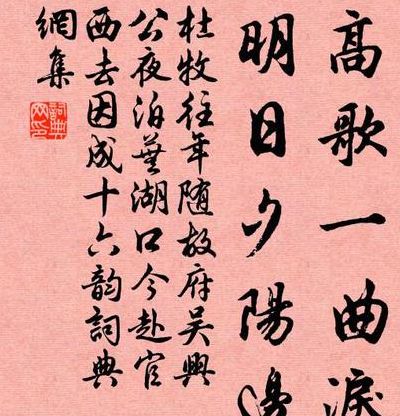 高歌一曲淚
明日夕陽邊
杜牧往年随故府吴興
公夜泊蕪湖口今赴官
西去因成十六韵詞典
網集